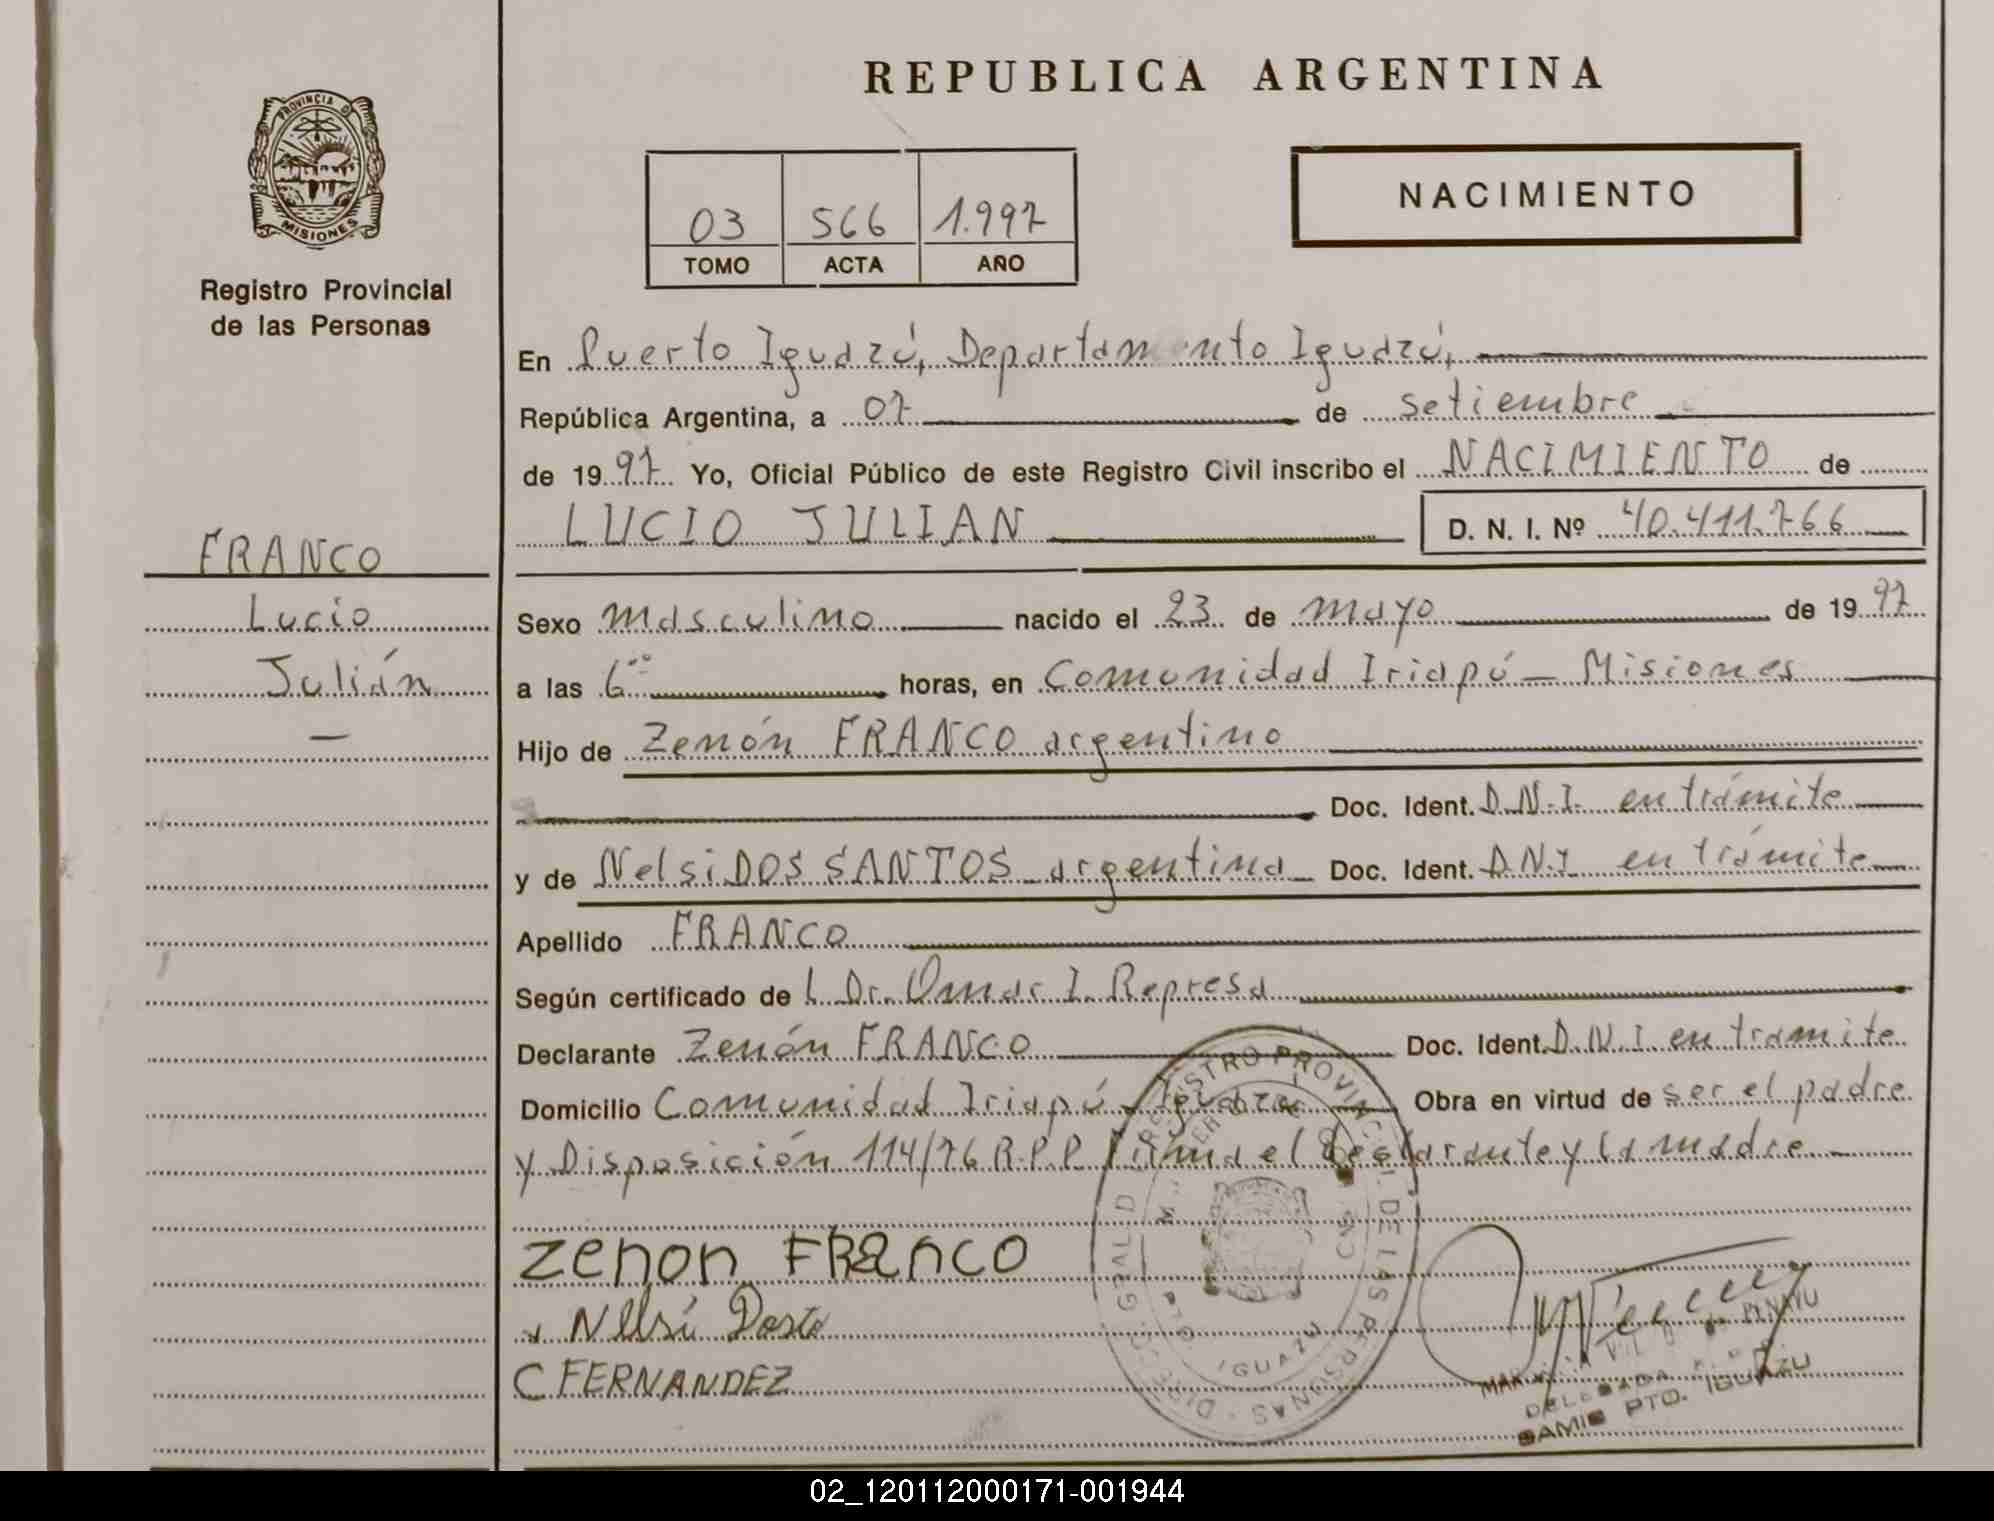 REPUBLICA ARGENTINA
PROVINCIA DE
MISIONES
Registro Provincial
de las Personas
NACIMIENTO
03 566 1.997
TOMO ACTA AÑO
En Puerto Iguazú, Departamento Iguazú,
República Argentina, a 07 de setiembre
de 19 97 Yo, Oficial Público de este Registro Civil inscribo el NACIMIENTO de
LUCIO JULIAN D. N. I. Nº 40.411.766
FRANCO
Lucio
Julián
Sexo masculino nacido el 23 de mayo de 19 97
a las 6 °° horas, en Comunidad Iriapú - Misiones
Hijo de Zenón FRANCO argentino
Doc. Ident. D.N.I. en trámite
y de Nelsi DOS SANTOS argentina Doc. Ident. D.N.I en trámite
Apellido FRANCO
Según certificado de L Dr. Omar I. Represa
Declarante Zenón FRANCO Doc. Ident. D.N.I en tramite
Domicilio Comunidad Iriapú - Iguazú Obra en virtud de ser el padre
y Disposición 114/76 R.P.P Firma el Declarante y la madre
zenon FRanco
Nelsi
C FERNANDEZ
REGISTRO PROVINCIAL DE LAS PERSONAS - DIRECC. GRAL D
IGUAZU
DELEGADA
SAMIC PTO. IGUAZU
02_120112000171-001944